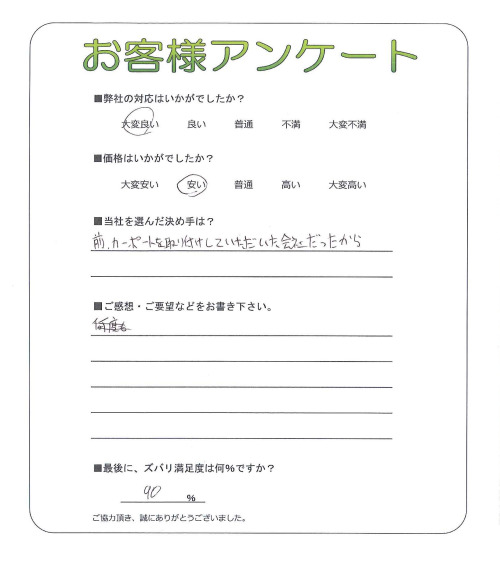 お客様アンケート
■弊社の対応はいかがでしたか？
大変良い 良い 普通 不満 大変不満
■価格はいかがでしたか？
大変安い 安い 普通 高い 大変高い
■当社を選んだ決め手は？
前、カーポートを取り付けしていただいた会社だったから
■ご感想・ご要望などをお書き下さい。
何度も
■最後に、ズバリ満足度は何%ですか？
90 %
ご協力頂き、誠にありがとうございました。